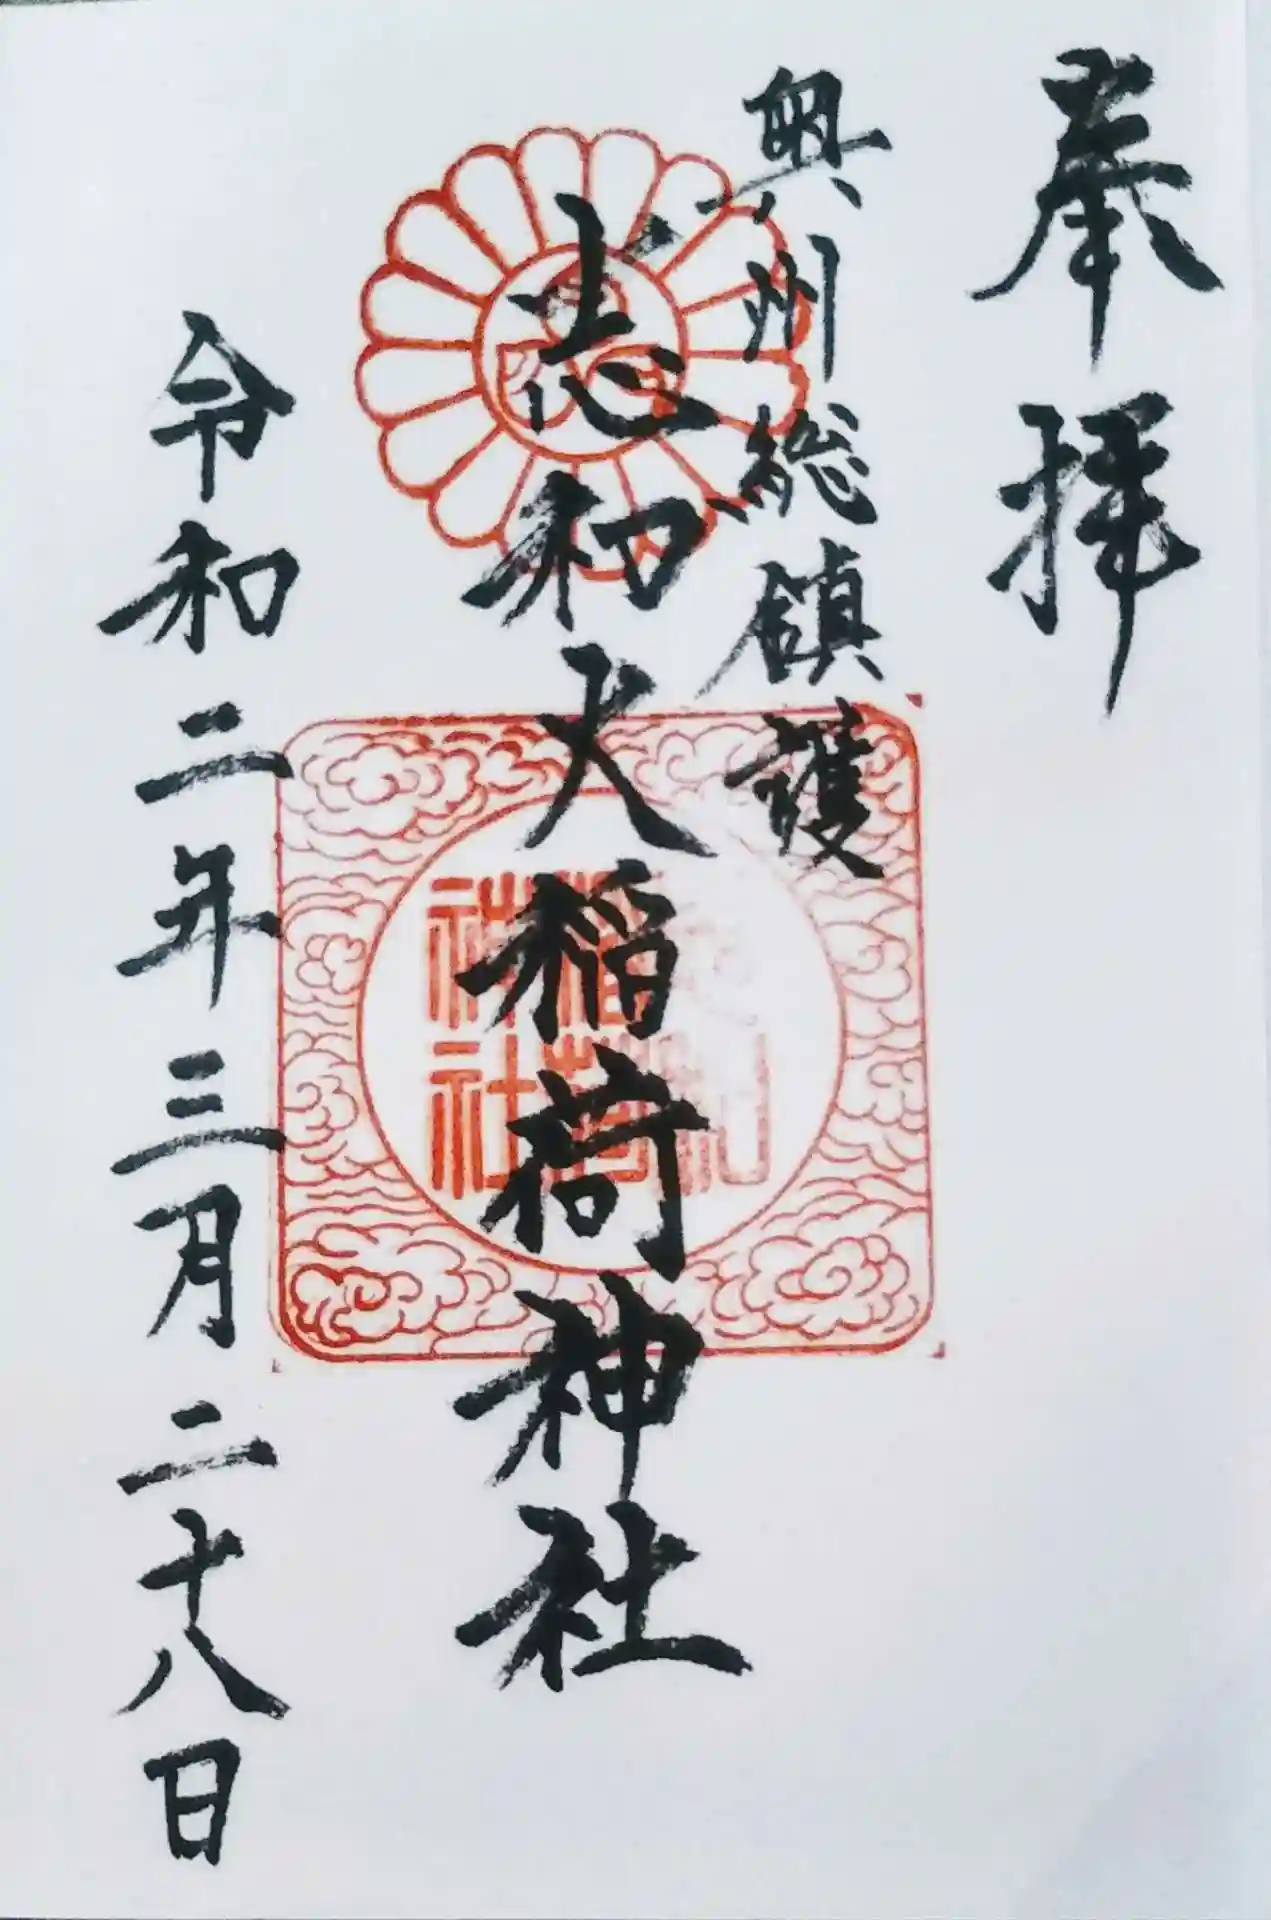 奉拝
奥州総鎮護
志和大稲荷神社
令和二年三月二十八日